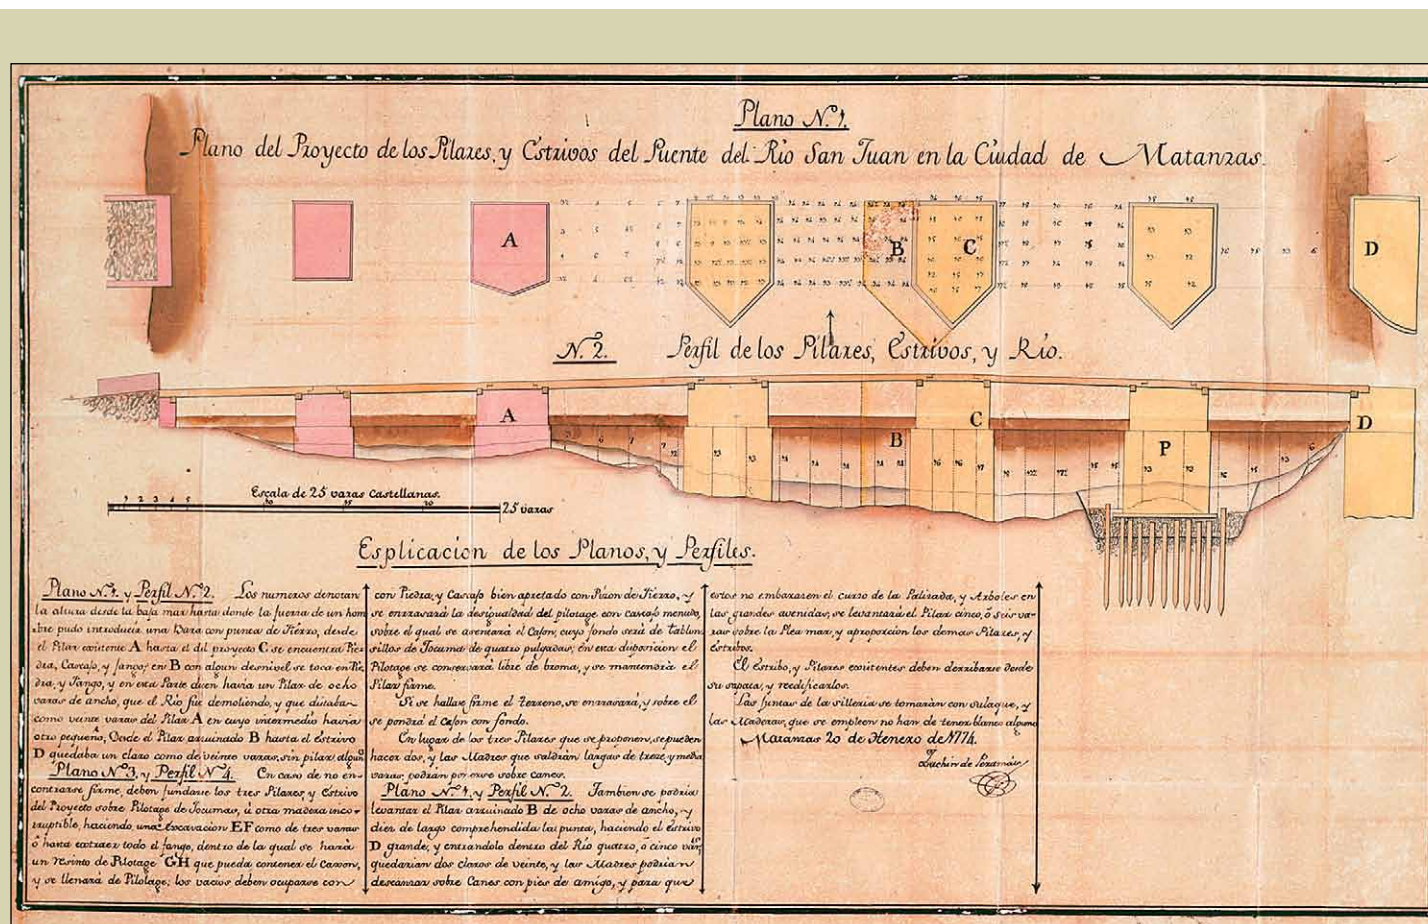 Plano N.º 1.
Plano del Proyecto de los Pilares, y Estrivos del Puente del Rio San Juan en la Ciudad de Matanzas.
A
B
C
D
N. 2. Perfil de los Pilares, Estrivos, y Rio.
A
B
C
P
D
Escala de 25 varas Castellanas.
1 2 3 4 5
25 varas
Esplicacion de los Planos, y Perfiles.
Plano N.º 1. y Perfil N.º 2. Los numeros denotan
la altura desde la baja mar hasta donde la fuerza de un hom
bre pudo introducir una Bara con punta de Fierro, desde
el Pilar existente A hasta el del proyecto C se encuentra Pie-
dra, Cascajo, y fango; en B con algun desnivel se toca en Pie
dra, y Fango, y en esta Parte dicen havia un Pilar de ocho
varas de ancho, que el Rio fue demoliendo, y que distaba
como veinte varas del Pilar A en cuyo intermedio havia
otro pequeño, Desde el Pilar arruinado B hasta el estrivo
D quedaba un claro como de veinte varas, sin pilar algun
Plano N.º 3. y Perfil N.º 4. En caso de no en-
contrarse firme, deben fundarse los tres Pilares, y Estrivo
del Proyecto sobre Pilotage de Jocumas, ú otra madera inco-
rruptible, haciendo una Excavacion EF como de tres varas
ó hasta extraer todo el fango, dentro de la qual se hará
un resinto de Pilotage GH que pueda contener el Caxon,
y se llenará de Pilotage; los vacios deben ocuparse con
con Piedra, y Cascajo bien apretado con Pizon de Fierro, y
se enrrasará la desigualdad del pilotage con cascajo menudo,
sobre el qual se asentará el Cajon, cuyo fondo será de tablon
sillos de Jocuma de quatro pulgadas; en esta disposicion el
Pilotage se conservará libre de broma, y se mantendrá el
Pilar firme.
Si se hallase firme el terreno, se enrrasará, y sobre el
se pondrá el Cajon con fondo.
En lugar de los tres Pilares que se proponen, se pueden
hacer dos, y las Madres que saldrán largas de treze, y media
varas, podrán ponerse sobre canes.
Plano N.º 1. y Perfil N.º 2. Tambien se podria
levantar el Pilar arruinado B de ocho varas de ancho, y
diez de largo comprehendida la punta, haciendo el estrivo
D grande, y entrandolo dentro del Rio quatro, ó cinco var.s
quedarian dos claros de veinte, y las Madres podrian
descansar sobre Canes con pies de amigo, y para que
estos no embarazen el curso de la Palizada, y Arboles en
las grandes avenidas, se levantará el Pilar cinco, ó seis va-
ras sobre la Plea mar, y aproporcion los demas Pilares, y
estribos.
El Estribo, y Pilares existentes deben derribarse desde
su zapata, y reedificarlos.
Las Juntas de la silleria se tomarán con sulaque, y
las Maderas, que se empleen no han de tener blanco alguno
Matanzas 20 de Henero de 1774.